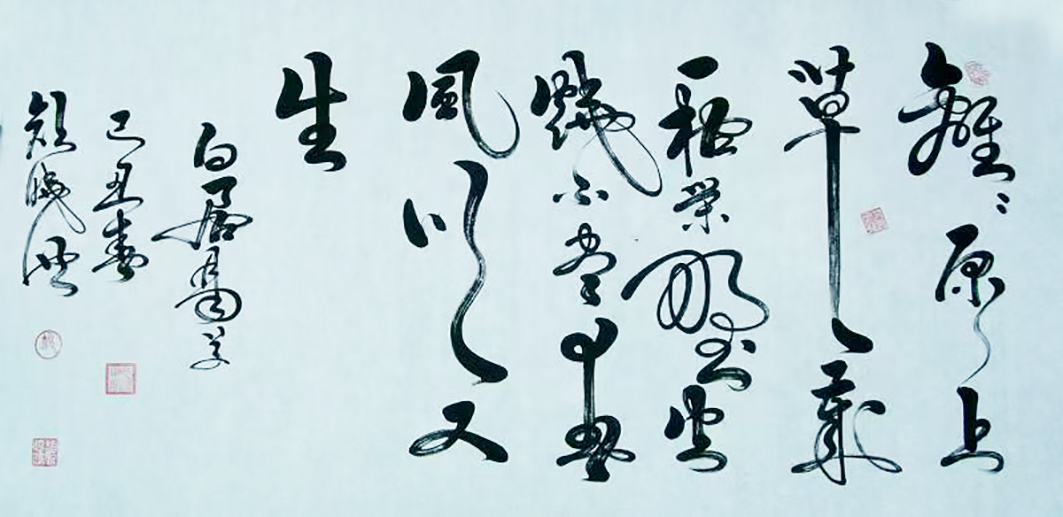 離〻原上
草一歲
一枯榮野火
燒不盡春
風吹又
生
白居易
己丑春